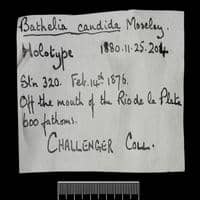 Bathelia candida Moseley.
Holotype 1880.11.25.204
Stn 320. Feb. 14th 1876.
Off the mouth of the Rio de la Plata
600 fathoms.
CHALLENGER COLL.